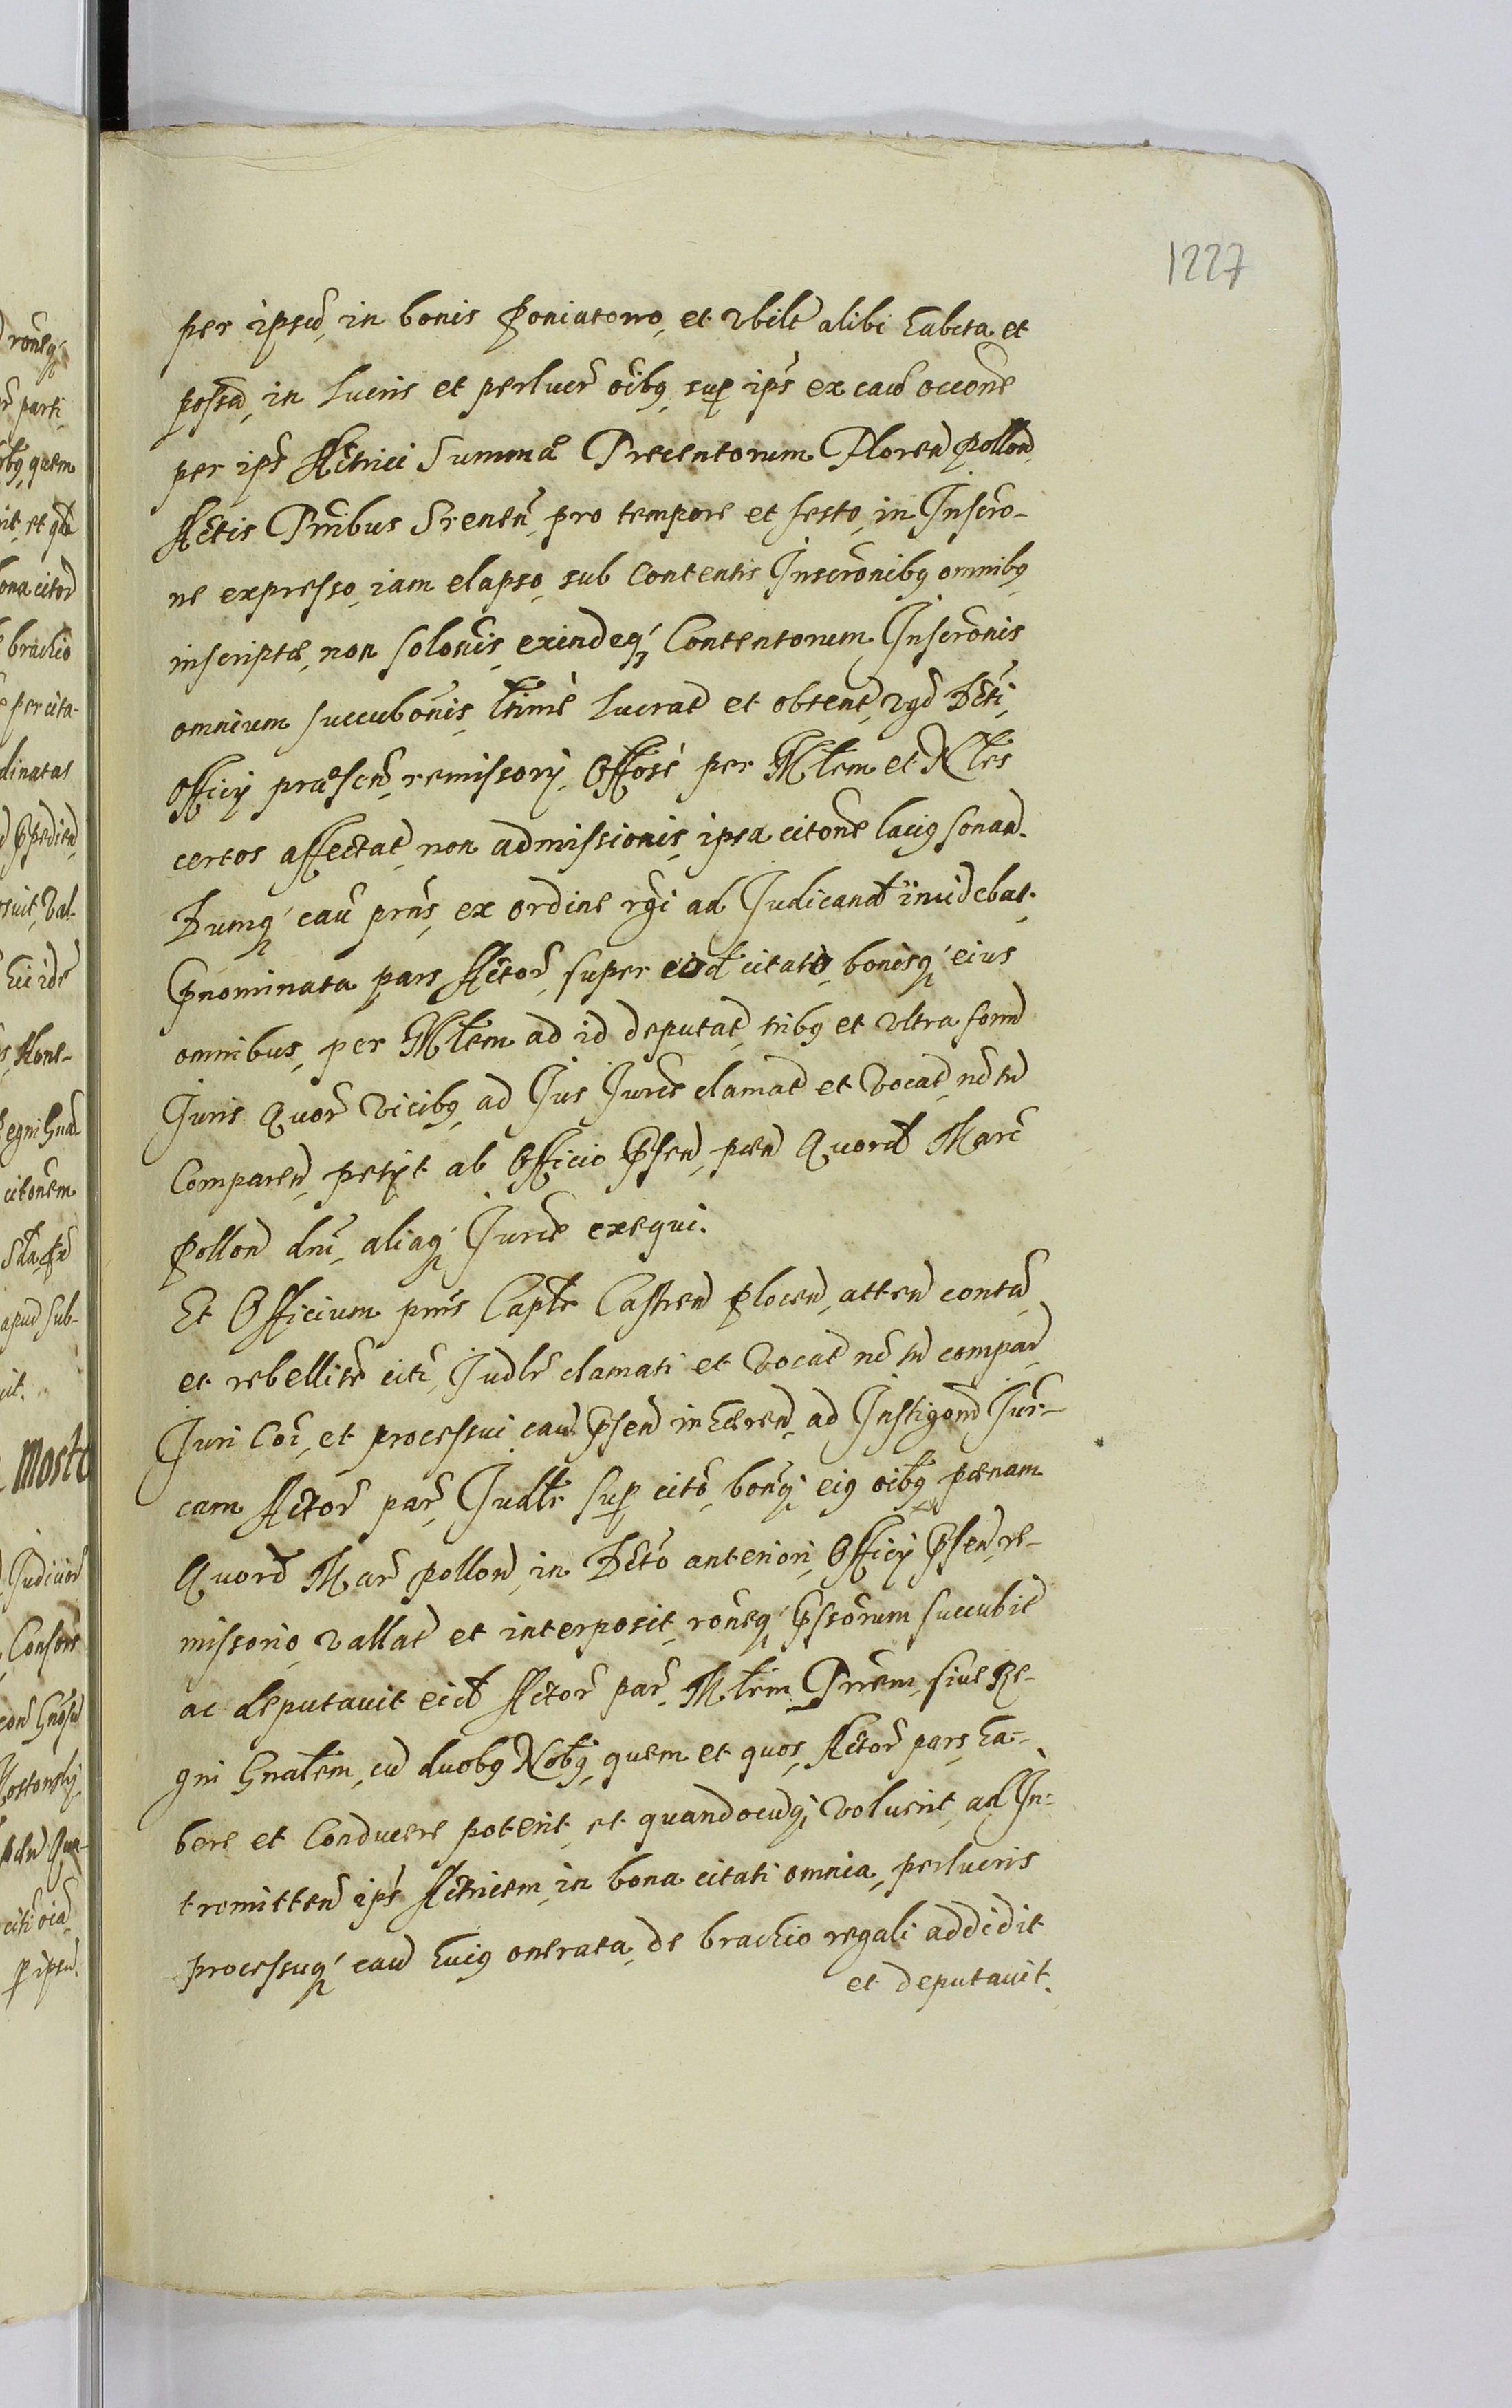 1227
per ipsū, in bonis Poniatowo, et vbilt alibi habita et
possā, in lucris et perlucr̃ oībq, sup ips̃ ex cau occone
per ips̃ Actrici Summæ Trecentorum Floreñ pollon̄
Actis Pñtibus Srenen̄, pro tempore et festo, in Inscro-
ne expresso, iam elapso, sub Contentis Inscronibq omnibq
inscriptæ, non solonis, exindeq, Contentorum Inscronis
omnium succubonis, ltime lucrat et obtent, vgd Dcti,
Officij præsen̄, remissorij, Offose per Mlem et Nles
certos affectat, non admissionis, ipsa citone laciq sonan.
Dumq, cau prns, ex ordine rgi ad Judicand incidebat.
Pnominata pars Actor̃, super eiod citato, bonisq, eius
omnibus, per Mlem ad id deputat, tribq et vltra form̄
Juris quor̃ vicibq, ad Jus Jurde clamat et vocat, nc tn
Comparen̄, petijt ab Officio Psen, pæn quord Marc̃
pollon̄ dni, aliaq, Jurde exequi.
Et Officium prns Captle Castren̄ Plocen̄, atten̄ contu,
et rebellite citi, Judlr clamati et vocat nc tn compar̄,
Juri Coi, et processui cau Psen inhæren̄, ad Instigon̄ Jur-
cam Actor̃ par̃, Judlr sup citō, bonq, eiq oibq pænam
Quord Mar̃ pollon̄, in Dcto anteriori, Officij Psen, re-
missorio, vallat et interposit, roneq, Pssorum succubit
ac deputavit eid Actor̃ par̃, Mlem Prem, siue Re-
gni Gnalem, cū duobq Nobq, quem et quos, Actor̃ pars, ha-
bere et Conducere poterit, et quandocūq, voluerit, ad In-
tromitten̄ ips̃ Actricem, in bona citati omnia, perlucris
processuq, cau huiq onerata, de brachio regali addidit
et deputauit.